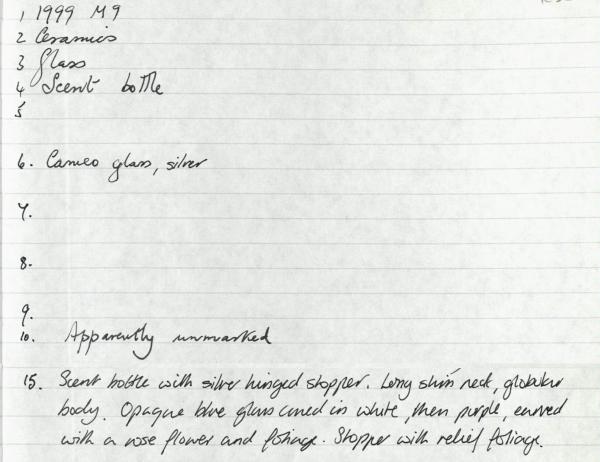 1 1999 M9
2 Ceramics
3 Glass
4 Scent bottle
5
6. Cameo glass, silver
7.
8.
9.
10. Apparently unmarked
15. Scent bottle with silver hinged stopper. Long slim neck, globular
body. Opaque blue glass cased in white, then purple, carved
with a rose flower and foliage. Stopper with relief foliage.